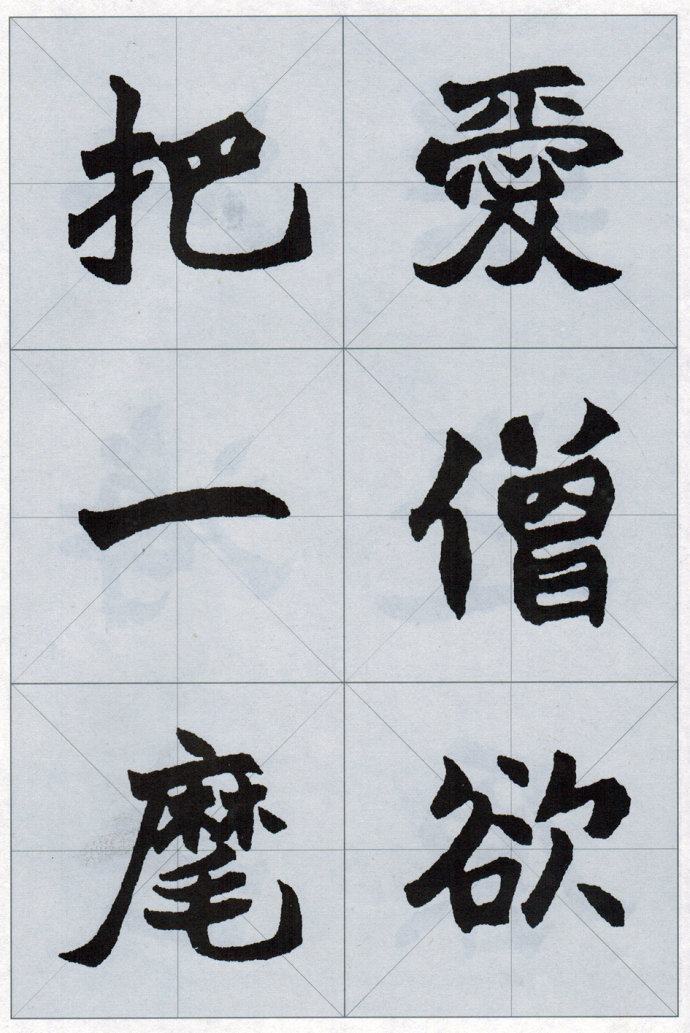 愛僧欲
把一麾